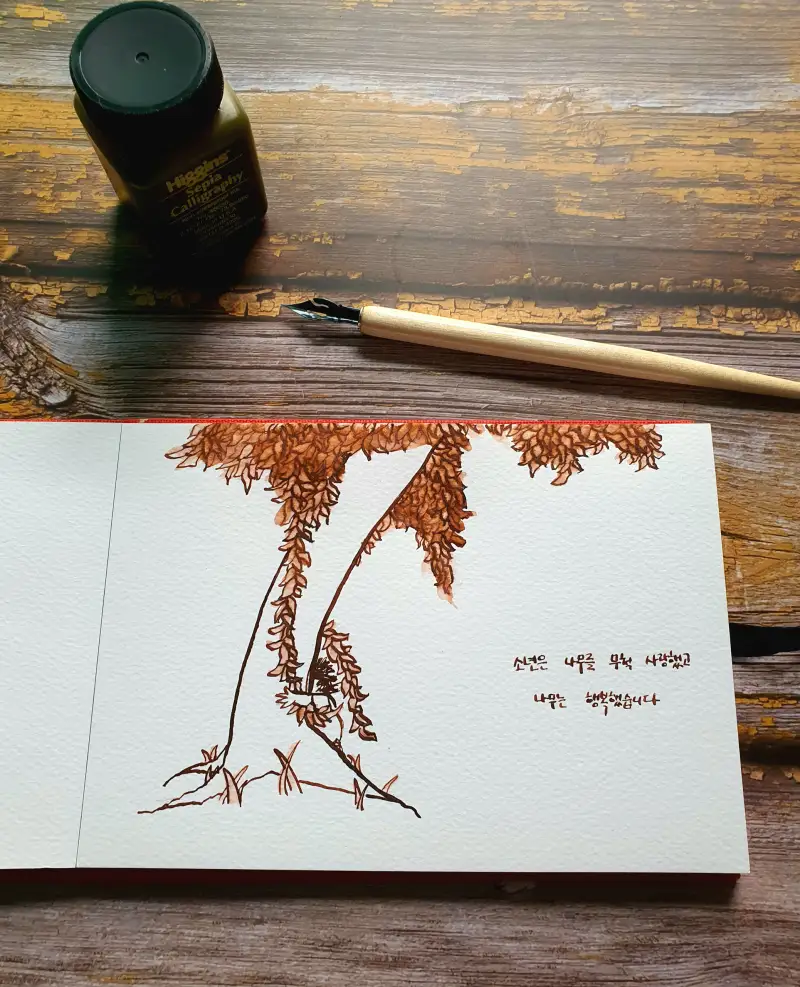 Higgins
Sepia
Calligraphy
소년은 나무를 무척 사랑했고
나무는 행복했습니다